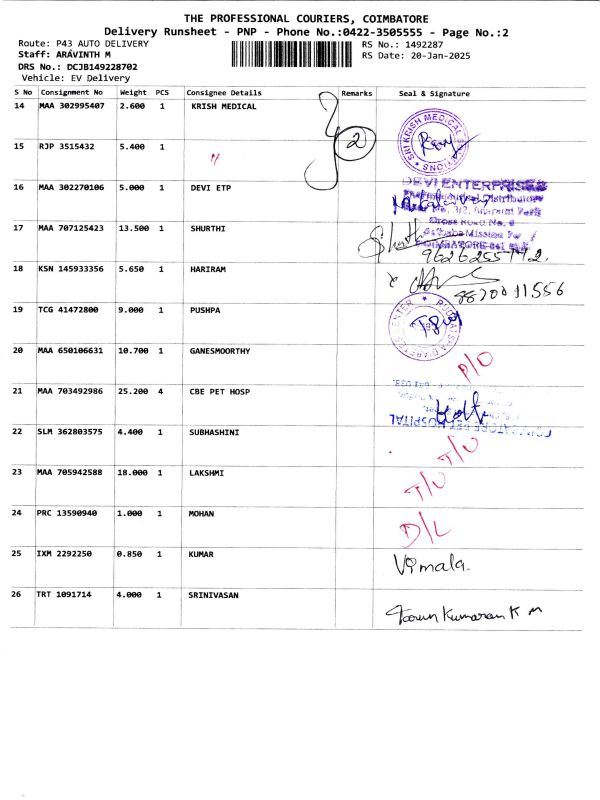 THE PROFESSIONAL COURIERS, COIMBATORE
Delivery Runsheet - PNP - Phone No.:0422-3505555 - Page No.:2
Route: P43 AUTO DELIVERY RS No.: 1492287
Staff: ARAVINTH M RS Date: 20-Jan-2025
DRS No.: DCJB149228702
Vehicle: EV Delivery
S No Consignment No Weight PCS Consignee Details Remarks Seal & Signature
14 MAA 302995407 2.600 1 KRISH MEDICAL
SRI KRISH MEDICAL
15 RJP 3515432 5.400 1 2
16 MAA 302270106 5.000 1 DEVI ETP
DEVI ENTERPRISES
17 MAA 707125423 13.500 1 SHURTHI
COIMBATORE-641
9626255742.
18 KSN 145933356 5.650 1 HARIRAM
8870011556
19 TCG 41472800 9.000 1 PUSHPA
DIABETES CENTER
20 MAA 650106631 10.700 1 GANESMOORTHY P/O
21 MAA 703492986 25.200 4 CBE PET HOSP
COIMBATORE PET HOSPITAL
22 SLM 362803575 4.400 1 SUBHASHINI T/U
23 MAA 705942588 18.000 1 LAKSHMI T/U
24 PRC 13590940 1.000 1 MOHAN D/L
25 IXM 2292250 0.850 1 KUMAR Vimala.
26 TRT 1091714 4.000 1 SRINIVASAN
Tarun Kumaran K M